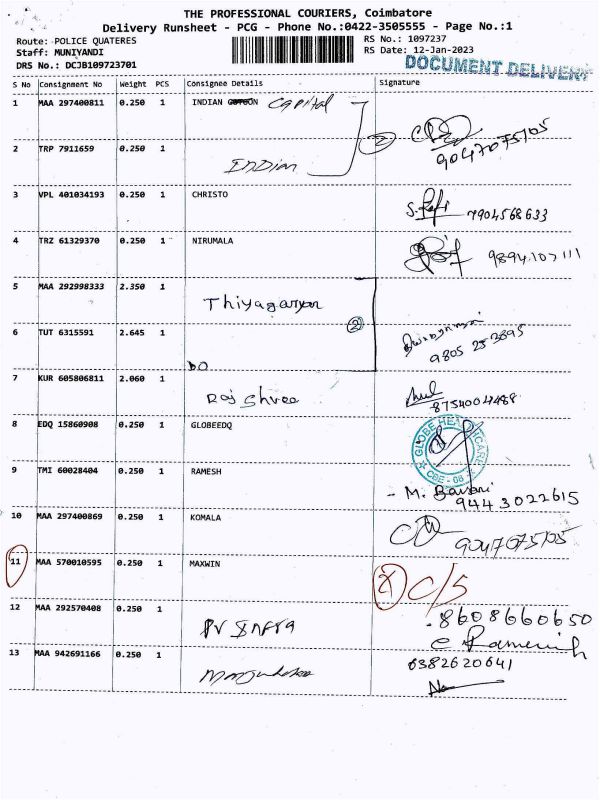 THE PROFESSIONAL COURIERS, Coimbatore
Delivery Runsheet - PCG - Phone No.:0422-3505555 - Page No.:1
Route: POLICE QUATERES RS No.: 1097237
Staff: MUNIYANDI RS Date: 12-Jan-2023
DRS No.: DCJB109723701 DOCUMENT DELIVERY
S No Consignment No Weight PCS Consignee Details Signature
1 MAA 297400811 0.250 1 INDIAN Capital
2 TRP 7911659 0.250 1 Indian 2 9047075105
3 VPL 401034193 0.250 1 CHRISTO 7904568633
4 TRZ 61329370 0.250 1 NIRUMALA 9894107111
5 MAA 292998333 2.350 1 Thiyagaryan
6 TUT 6315591 2.645 1 DO 2 9805 252895
7 KUR 605806811 2.060 1 Raj Shree 8754004488
8 EDQ 15860908 0.250 1 GLOBEEDQ GLOBE HEALTHCARE CBE - 08
9 TMI 60028404 0.250 1 RAMESH - M. Bavani 9443022615
10 MAA 297400869 0.250 1 KOMALA 9047075105
11 MAA 570010595 0.250 1 MAXWIN C/S
12 MAA 292570408 0.250 1 PV Infra 8608660650
13 MAA 942691166 0.250 1 6382620641